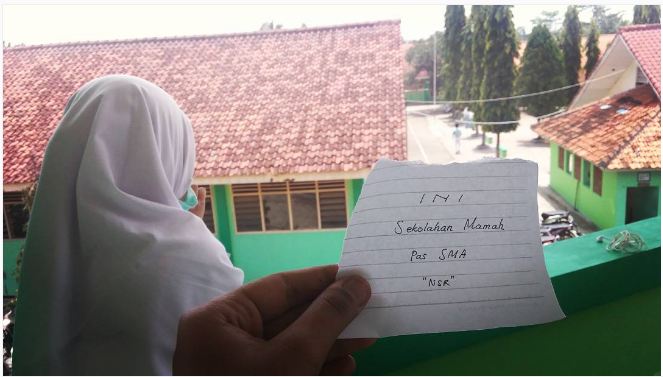 INI
Sekolahan Mamah
Pas SMA
"NSR"